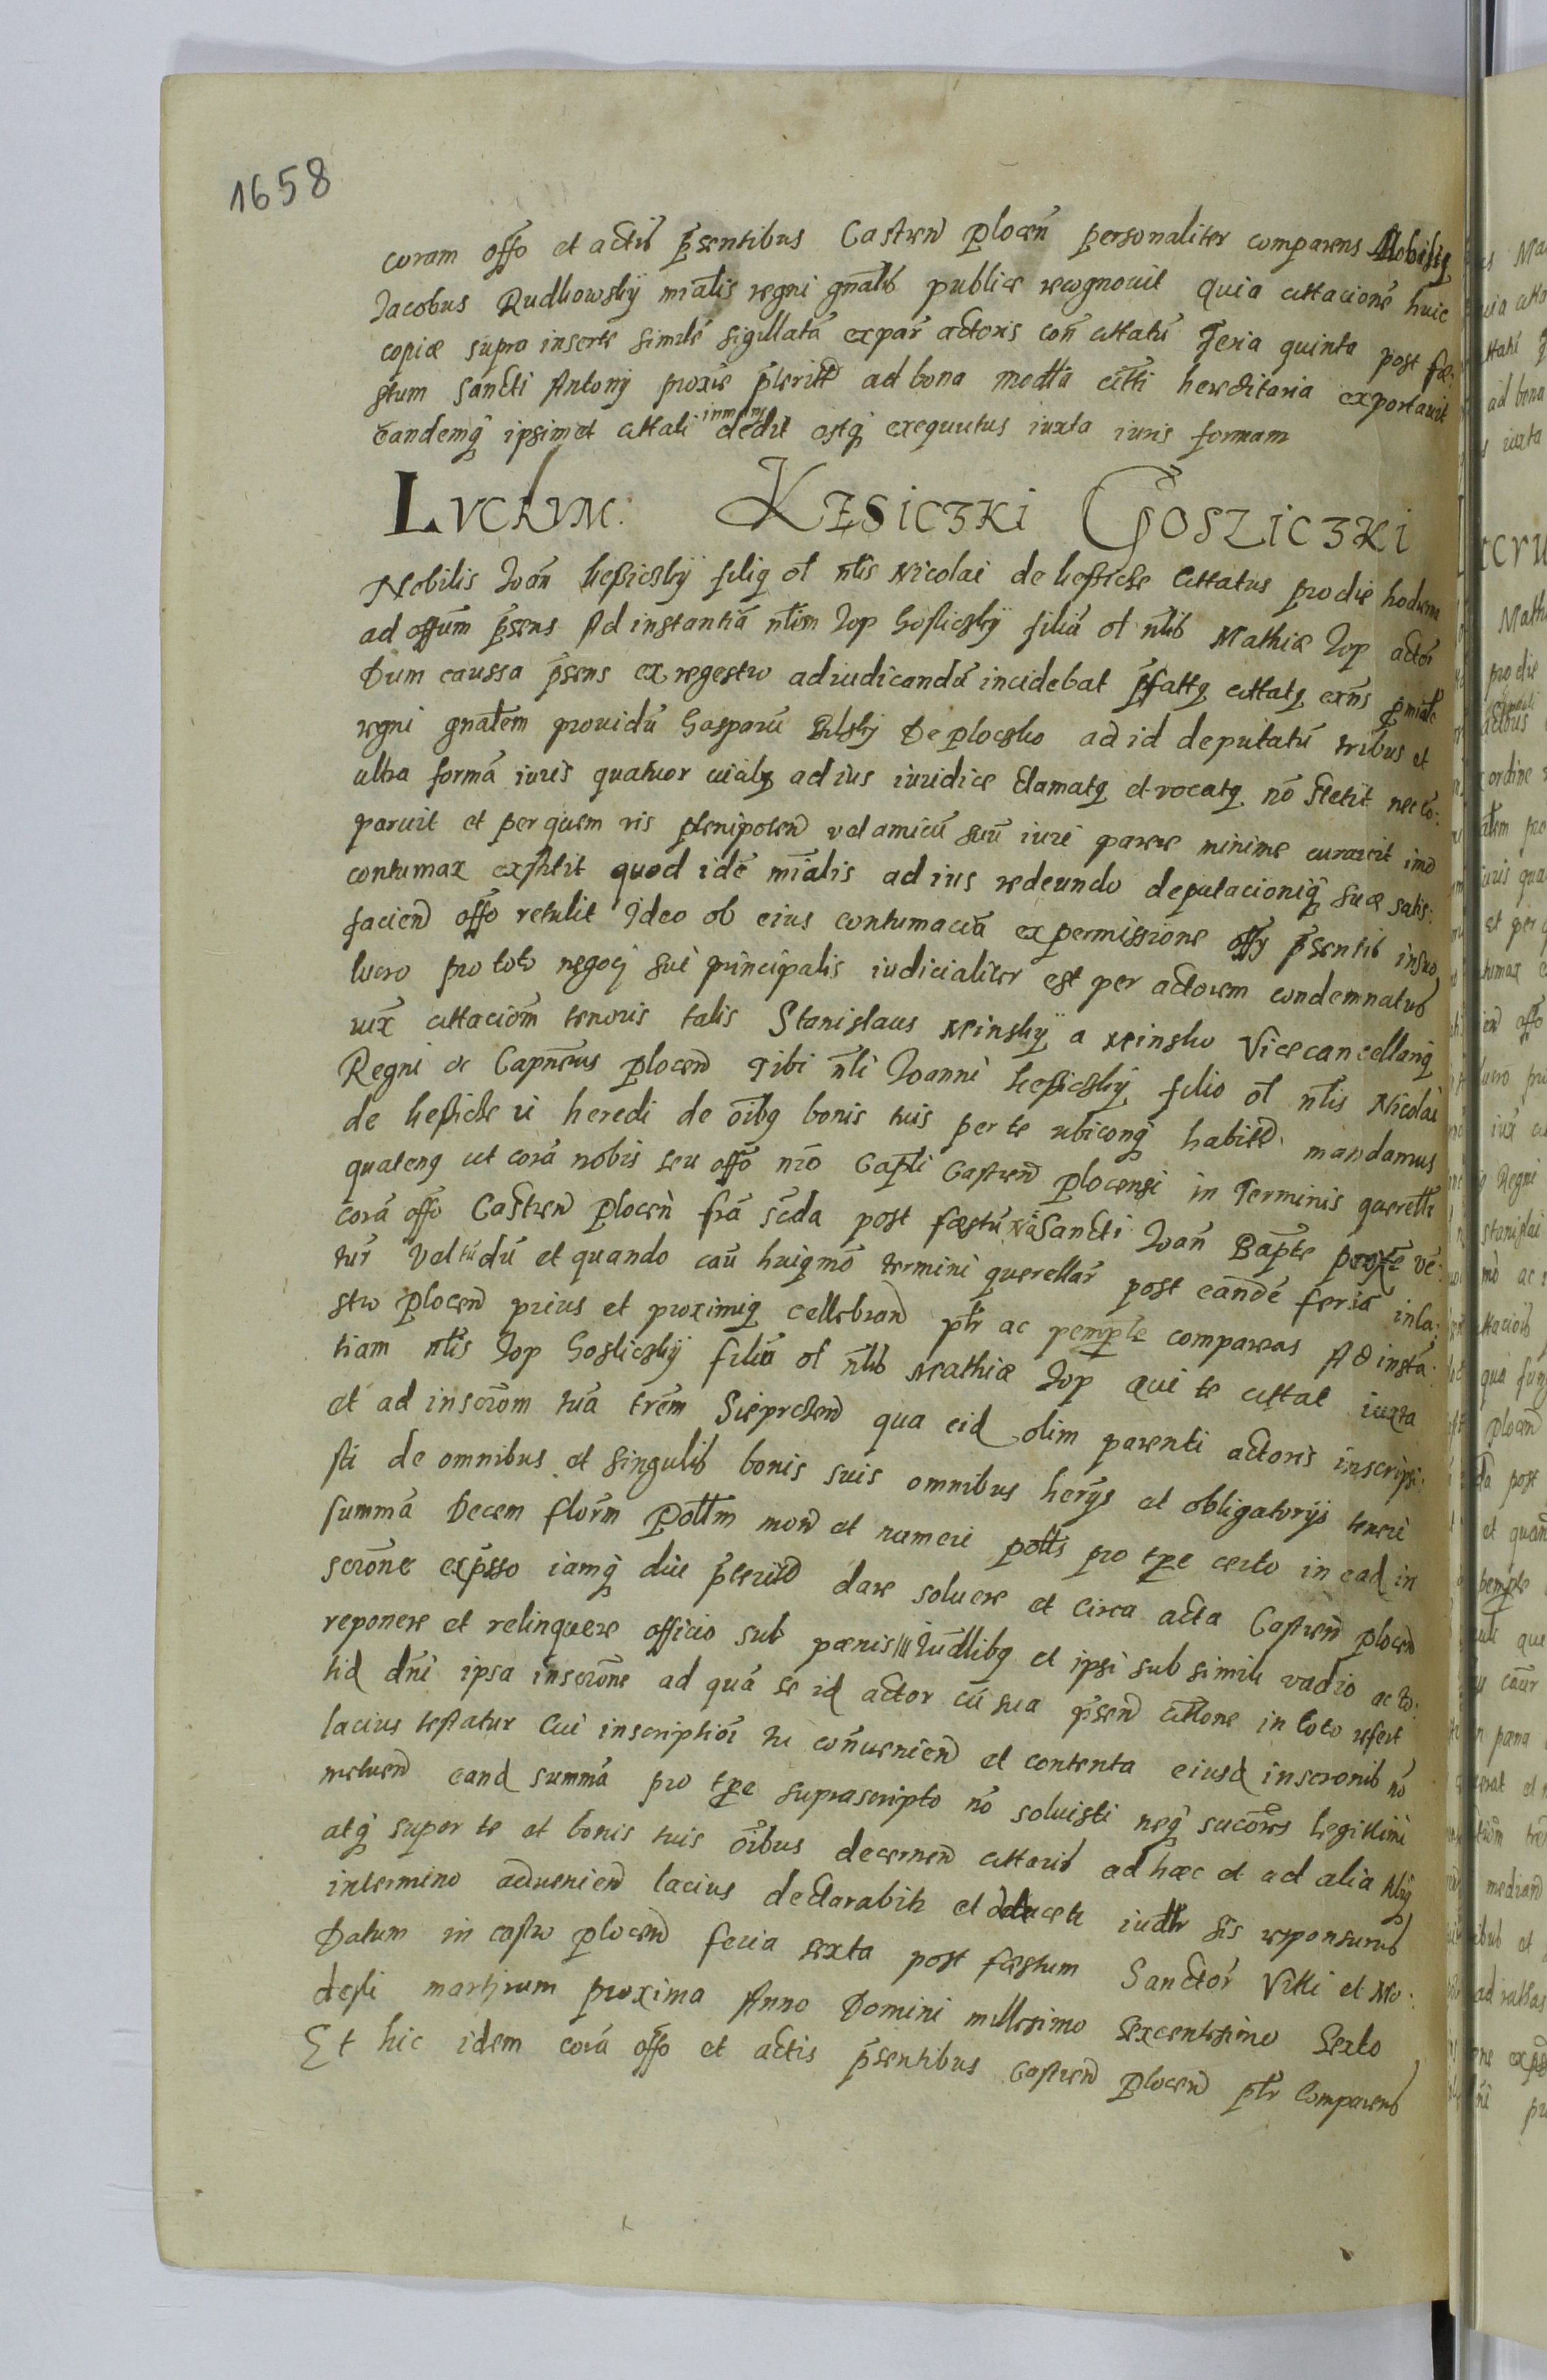 1658
coram offo et actis psentibus Castren plocen personaliter comparens Nobilis
Jacobus Rudkowskÿ mialis regni gnalis publice recognovit quia cittacionē huic
copiæ supra insertē similē sigillatā ex par actoris con cittatū Feria quinta post fæ:
stum Sancti Antonij proxie pterittā ad bona modta citti hereditaria exportavit
eandemq ipsimet cittati inmanus dedit estq exequutus iuxta iuris formam
LVCRVM. KESICZKI GOSZICZKI
Nobilis Joan kesiczkÿ filiq ol nlis Nicolai de kesicze Cittatus pro die hodierna
ad offum psens Ad instantiā nlism Jop Goslicskÿ filiū ol nlis Mathiæ Jop actor
Dum caussa psens ex regestro adiudicandū incidebat pfattq cittatq exns p miale
regni gnalem providū Gasparū Bilskij De plocsko ad id deputatū tribus et
ultra formā iuris quatuor vicibq ad ius iuridice clamatq et vocatq nō stetit nec cō:
paruit et per quem vis plenipoten vel amicū suū iuri parere minime curavit imo
contumax exstitit quod idē mialis ad ius redeundo deputacioniq suæ satis:
facien offo retulit Ideo ob eius contumaciā ex permissione offy psentis in suo
lucro pro toto negocj sui principalis iudicialiter est per actorem condemnatus
iux cittaciom tenoris talis Stanislaus Minskÿ a Minsko Vicecancellariq
Regni et Capneus plocen Tibi nli Joanni kesiczkij filio ol nlis Nicolai
de kesicze ii heredi de oibq bonis tuis per te ubiconq habitis mandamus
quatenq ut corā nobis seu offo nro Capli Castren plocensi in Terminis querelli
corā offo Castren plocen fra scda post fæstū Sancti Joan Bapte proxie ve:
tur Vel tū dū et quando cau huiqmō termini querellar post eandē feriā in ca:
stro plocen prius et proximiq cellebran ptr ac pempte compareas Ad instā:
tiam nlis Jop Goslicskÿ filiū ol nlis Mathiæ Jop qui te cittat iuxta
et ad inscrom tuā trēm Sieprchen qua eid olim parenti actoris inscripsi:
sti de omnibus et singulis bonis suis omnibus herijs et obligatorijs teneri
summā Decem florm Pollm mon et numeri pollis pro tpe certo in ead in
scrone expsso iamq diu pterito dare solvere et circa acta Castren plocen
reponere et relinquere officio sub pænis iudlibq et ipsi sub simili vadio ac to:
tid dni ipsa inscrone ad quā se id actor cū sua psen cittone in toto refert
lacius testatur Cui inscriptioi tu convenien et contenta eiusd inscronis nō
metuen eand summā pro tpe suprascripto nō solvisti neq sucores legittimi
atq super te et bonis tuis oibus decernen cittaris ad hæc et ad alia tibj
in termino advenien lacius declarabitr et deducetr iudtr sis responsurus
Datum in castro plocen feria sexta post fæstum Sanctor Vitti et Mo:
desti martjrum proxima Anno Domini millesimo sexcentesimo sexto
Et hic idem corā offo et actis psentibus Castren plocen ptr Comparens